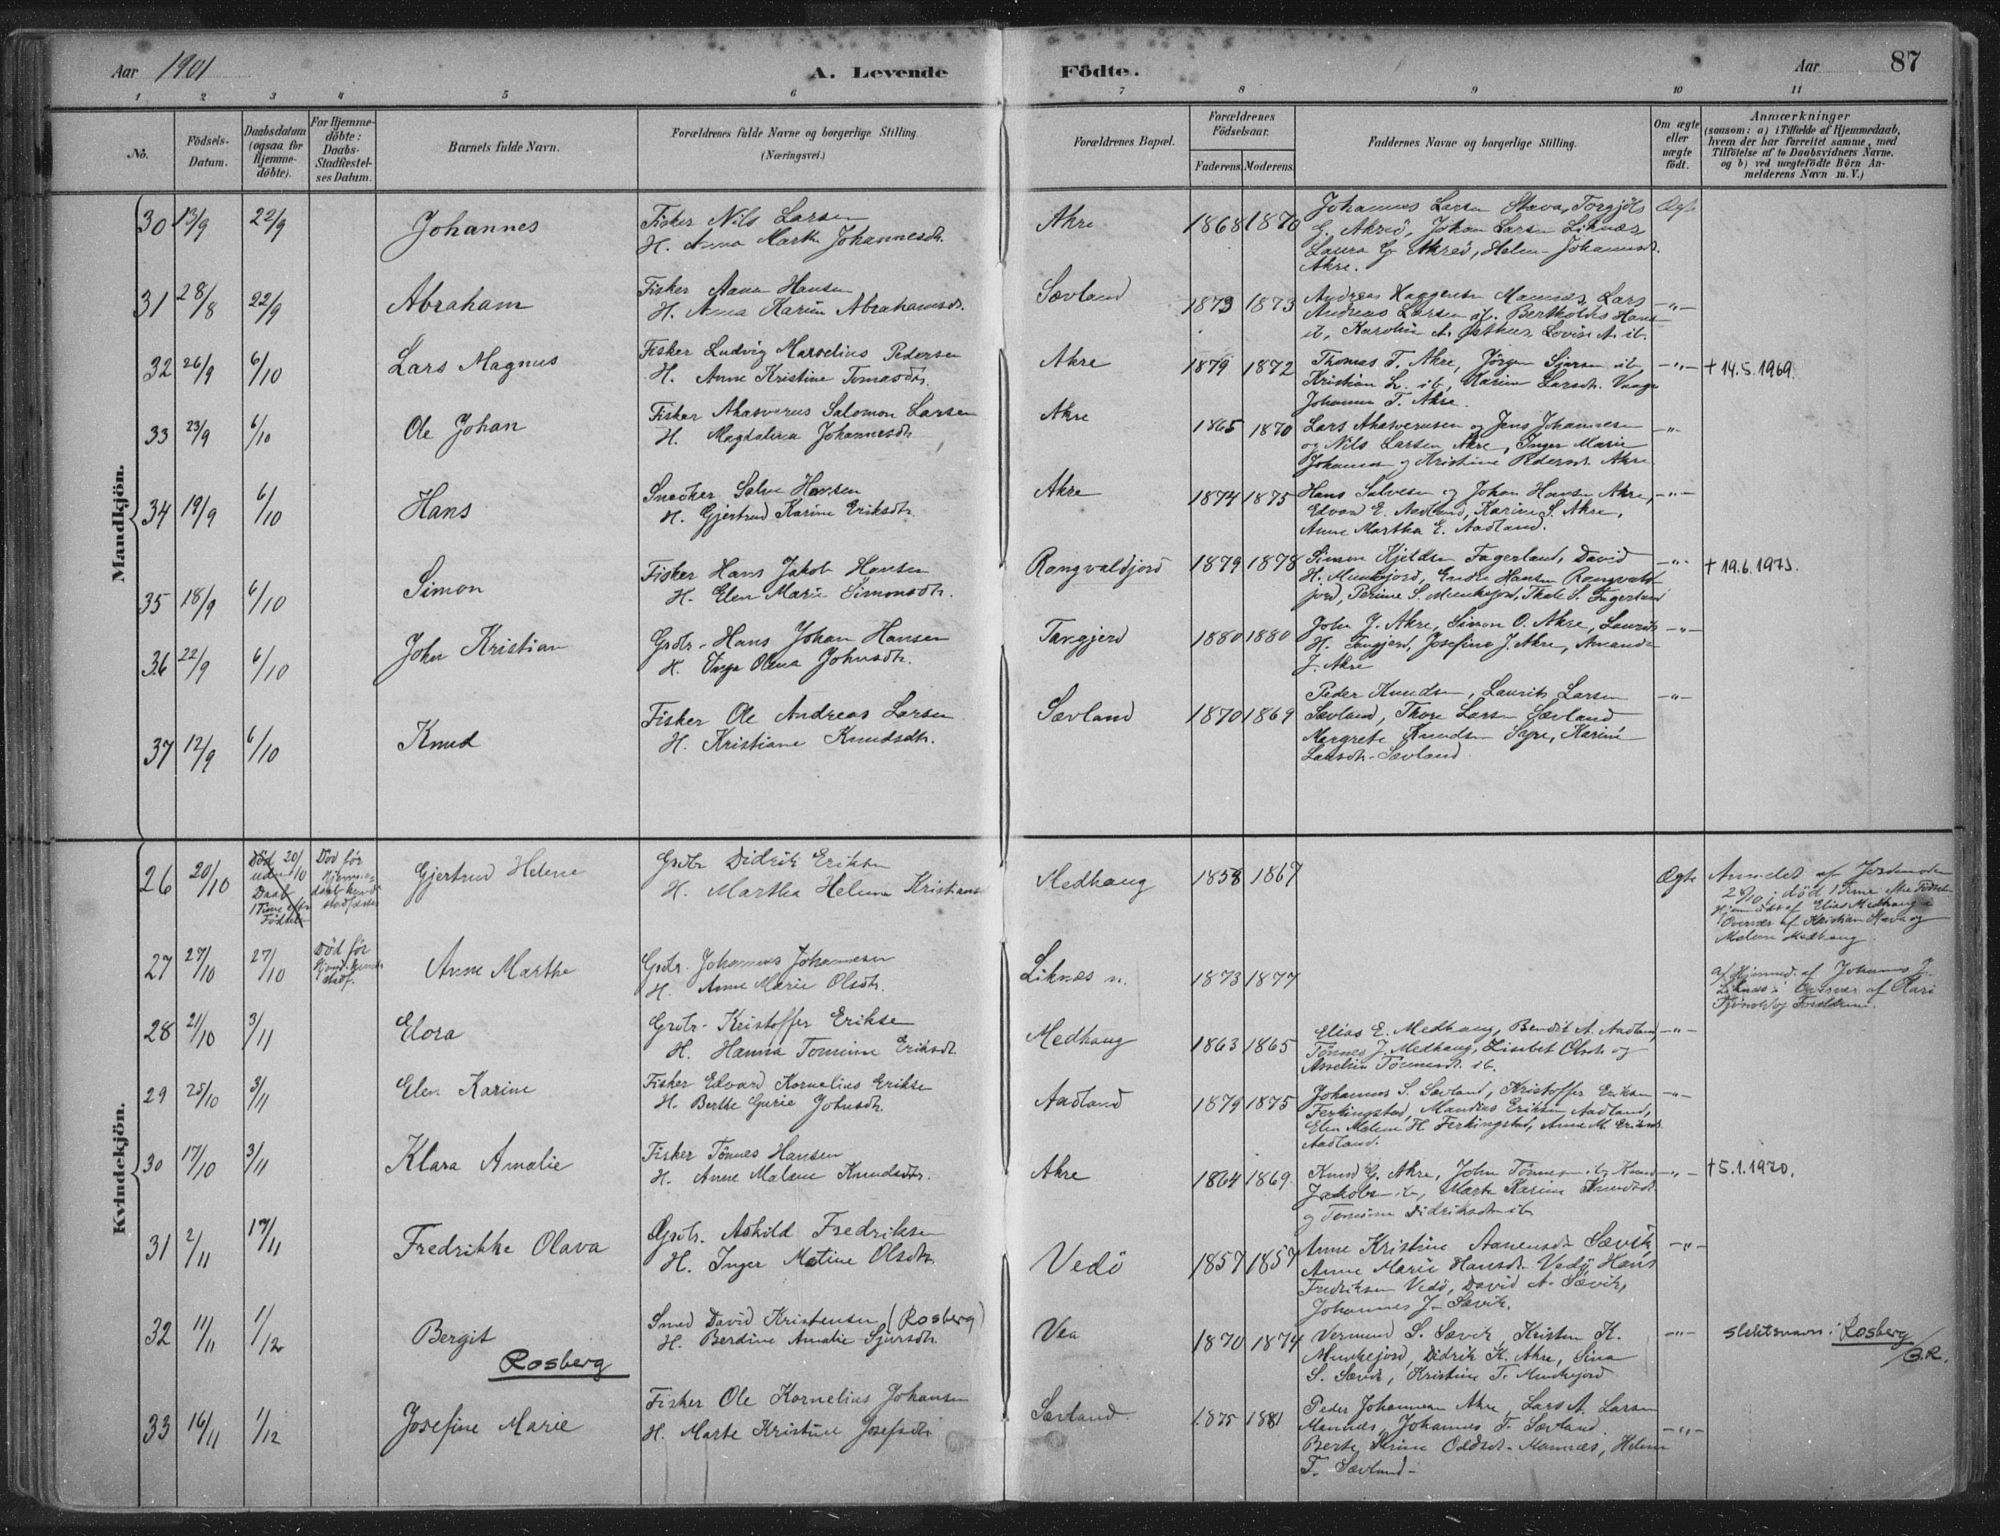 Aar 1901
A. Levende Födte.
Aar 87
1 2 3 4 5 6 7 8 9 10 11
No.
Födsels-Datum.
Daabsdatum (ogsaa for Hjemme-döbte).
For Hjemme-döbte: Daabs-Stadfæstel-ses Datum.
Barnets fulde Navn.
Forældrenes fulde Navne og borgerlige Stilling. (Næringsvei.)
Forældrenes Bopæl.
Forældrenes Födselsaar.
Faderens. Moderens.
Faddernes Navne og borgerlige Stilling.
Om ægte eller uægte födt.
Anmærkninger
(saasom: a) i Tilfælde af Hjemmedaab, hvem der har forrettet samme, med Tilföielse af to Daabsvidners Navne. og b) ved uægtefödte Börn An-melderens Navn m. V.)
Mandkjön.
30 13/9 22/9 Johannes
Fisker Nils Larsen
H. Anna Marth. Johannesdtr.
Akre 1868 1870
Johannes Larsen Stava, Torgjöls
G. Akreö, Johan Larsen Liknæs,
Laura G. Akreö, Helene Johannesdt.
Akre.
Ægte
31 28/8 22/9 Abraham
Fisker Aanen Hansen
H. Anna Karine Abrahamsdtr.
Sævland 1873 1873
Andreas Haagensen Mannæs, Lars
-"-
32 26/9 6/10 Lars Magnus
Fisker Ludvig Marselius Pedersen
H. Anne Kristine Tomasdtr.
Akre 1879 1872
Thomas T. Akre, Jörgen Sjursen ib
Kristian L. ib, Karine Larsdt. Vaage
Johanna T. Akre.
-"- † 14.5.1969.
33 23/9 6/10 Ole Johan
Fisker Ahasverus Salomon Larsen
H. Magdalena Johannesdtr
Akre 1865 1870
Lars Ahasverusen og Jens Johannesen
og Nils Larsen Akre, Inger Marie
Johanna og Kristine Pedersdt. Akre
-"-
34 19/9 6/10 Hans
Snedker Salve Hansen
H. Gjertrud Karine Eriksdtr.
Akre 1874 1875
Hans Salvesen og Johan Hansen Akre,
Edvard E. Aadland, Karine S. Akre,
Anne Martha E. Aadland.
-"-
35 18/9 6/10 Simon
Fisker Hans Jakob Hansen
H. Elen Marie Simonsdtr.
Rongvaldjord 1879 1878
Simon Kjeldsen Fagerland, David
H. Munkejord, Endre Hansen Rongvald-
jord, Perine S. Munkejord, Thale S. Fagerland
-"- † 19.6.1975.
36 22/9 6/10 John Kristian
Grdbr. Hans Johan Hansen
H. Inga Olena Johnsdtr.
Tangjerd 1880 1880
John J. Akre, Simon O. Akre, Laurits
H. Tangjerd, Josefine J. Akre, Amanda
J. Akre
-"-
37 12/9 6/10 Knud
Fisker Ole Andreas Larsen
H. Kristiane Knudsdtr.
Sævland 1870 1869
Peder Knudsen, Laurits Larsen
Sævland, Thore Larsen Sævland
Margrete Knudsen Sagre, Karine
Larsdtr. Sævland.
-"-
Kvindekjön.
26 20/10 Död 20/10 uden Daab 1 Time efter Födsel
Död før Hjemme-
Gjertrud Helene
Grdbr. Didrik Eriksen
H. Martha Helene Kristians
Medhaug 1858 1867 Ægte
Anmeldt af Jordmoder
död 1 Time efter Födsel
af Elias Medhaug i
Overvær af Kristian Stava og
Malene Medhaug.
27 27/10 27/10 Död før
Anne Marthe
Grdbr. Johannes Johannesen
H. Anne Marie Olsdtr.
Liknæs n. 1873 1877
af Hjemmed. af Johannes J.
Liknæs i Overvær af Kari
28 21/10 3/11 Elora
Grdbr. Kristoffer Eriksen
H. Hanna Tomine Eriksdtr.
Medhaug 1863 1865
Elias E. Medhaug, Bendik A. Aadland,
Tönnes J. Medhaug, Lisebet Olsdt. og
Anselin Tönnesdt. ib.
-"-
29 25/10 3/11 Elen Karine
Fisker Edvard Kornelius Eriksen
H. Berthe Gurie Johnsdtr.
Aadland 1879 1875
Johannes S. Sævland, Kristoffer Eriksen
Ferkingstad, Mandius Eriksen Aadland,
Elen Malene H. Ferkingstad, Anne M. Eriksdt.
Aadland.
-"-
30 17/10 3/11 Klara Amalie
Fisker Tönnes Hansen
H. Anne Malene Knudsdtr.
Akre 1864 1869
Knud G. Akre, John Tönnesen ib, Knud
Jakobsen ib, Marte Karine Knudsdt.
og Tomine Didriksdtr. ib
-"- † 5.1.1970.
31 2/11 17/11 Fredrikke Olava
Grdbr. Askild Fredriksen
H. Inger Matine Olsdtr.
Vedö 1857 1857
Anne Kristine Aanensdt. Sævik
Anne Marie Hansdt. Vedö Hans
Fredriksen Vedö, David A. Sævik,
Johannes J. Sævik.
-"-
32 11/11 1/12 Bergit
Rosberg
Smed David Kristensen (Rosberg)
H. Berdine Amalie Sjursdtr.
Vea 1870 1874
Vermund S. Sævik, Kristen K.
Munkejord, Didrik K. Akre, Sina
S. Sævik, Kristine T. Munkejord
-"- slektsnavn: Rosberg
/G.R.
33 16/11 1/12 Josefine Marie
Fisker Ole Kornelius Johansen
H. Marte Kristine Josefsdtr.
Sævland. 1875 1881
Peder Johannesen Akre, Lars A. Larsen
Mannæs, Johannes T. Sævland.
Berte Oldsdt. Mannæs, Helene
T. Sævland.
-"-